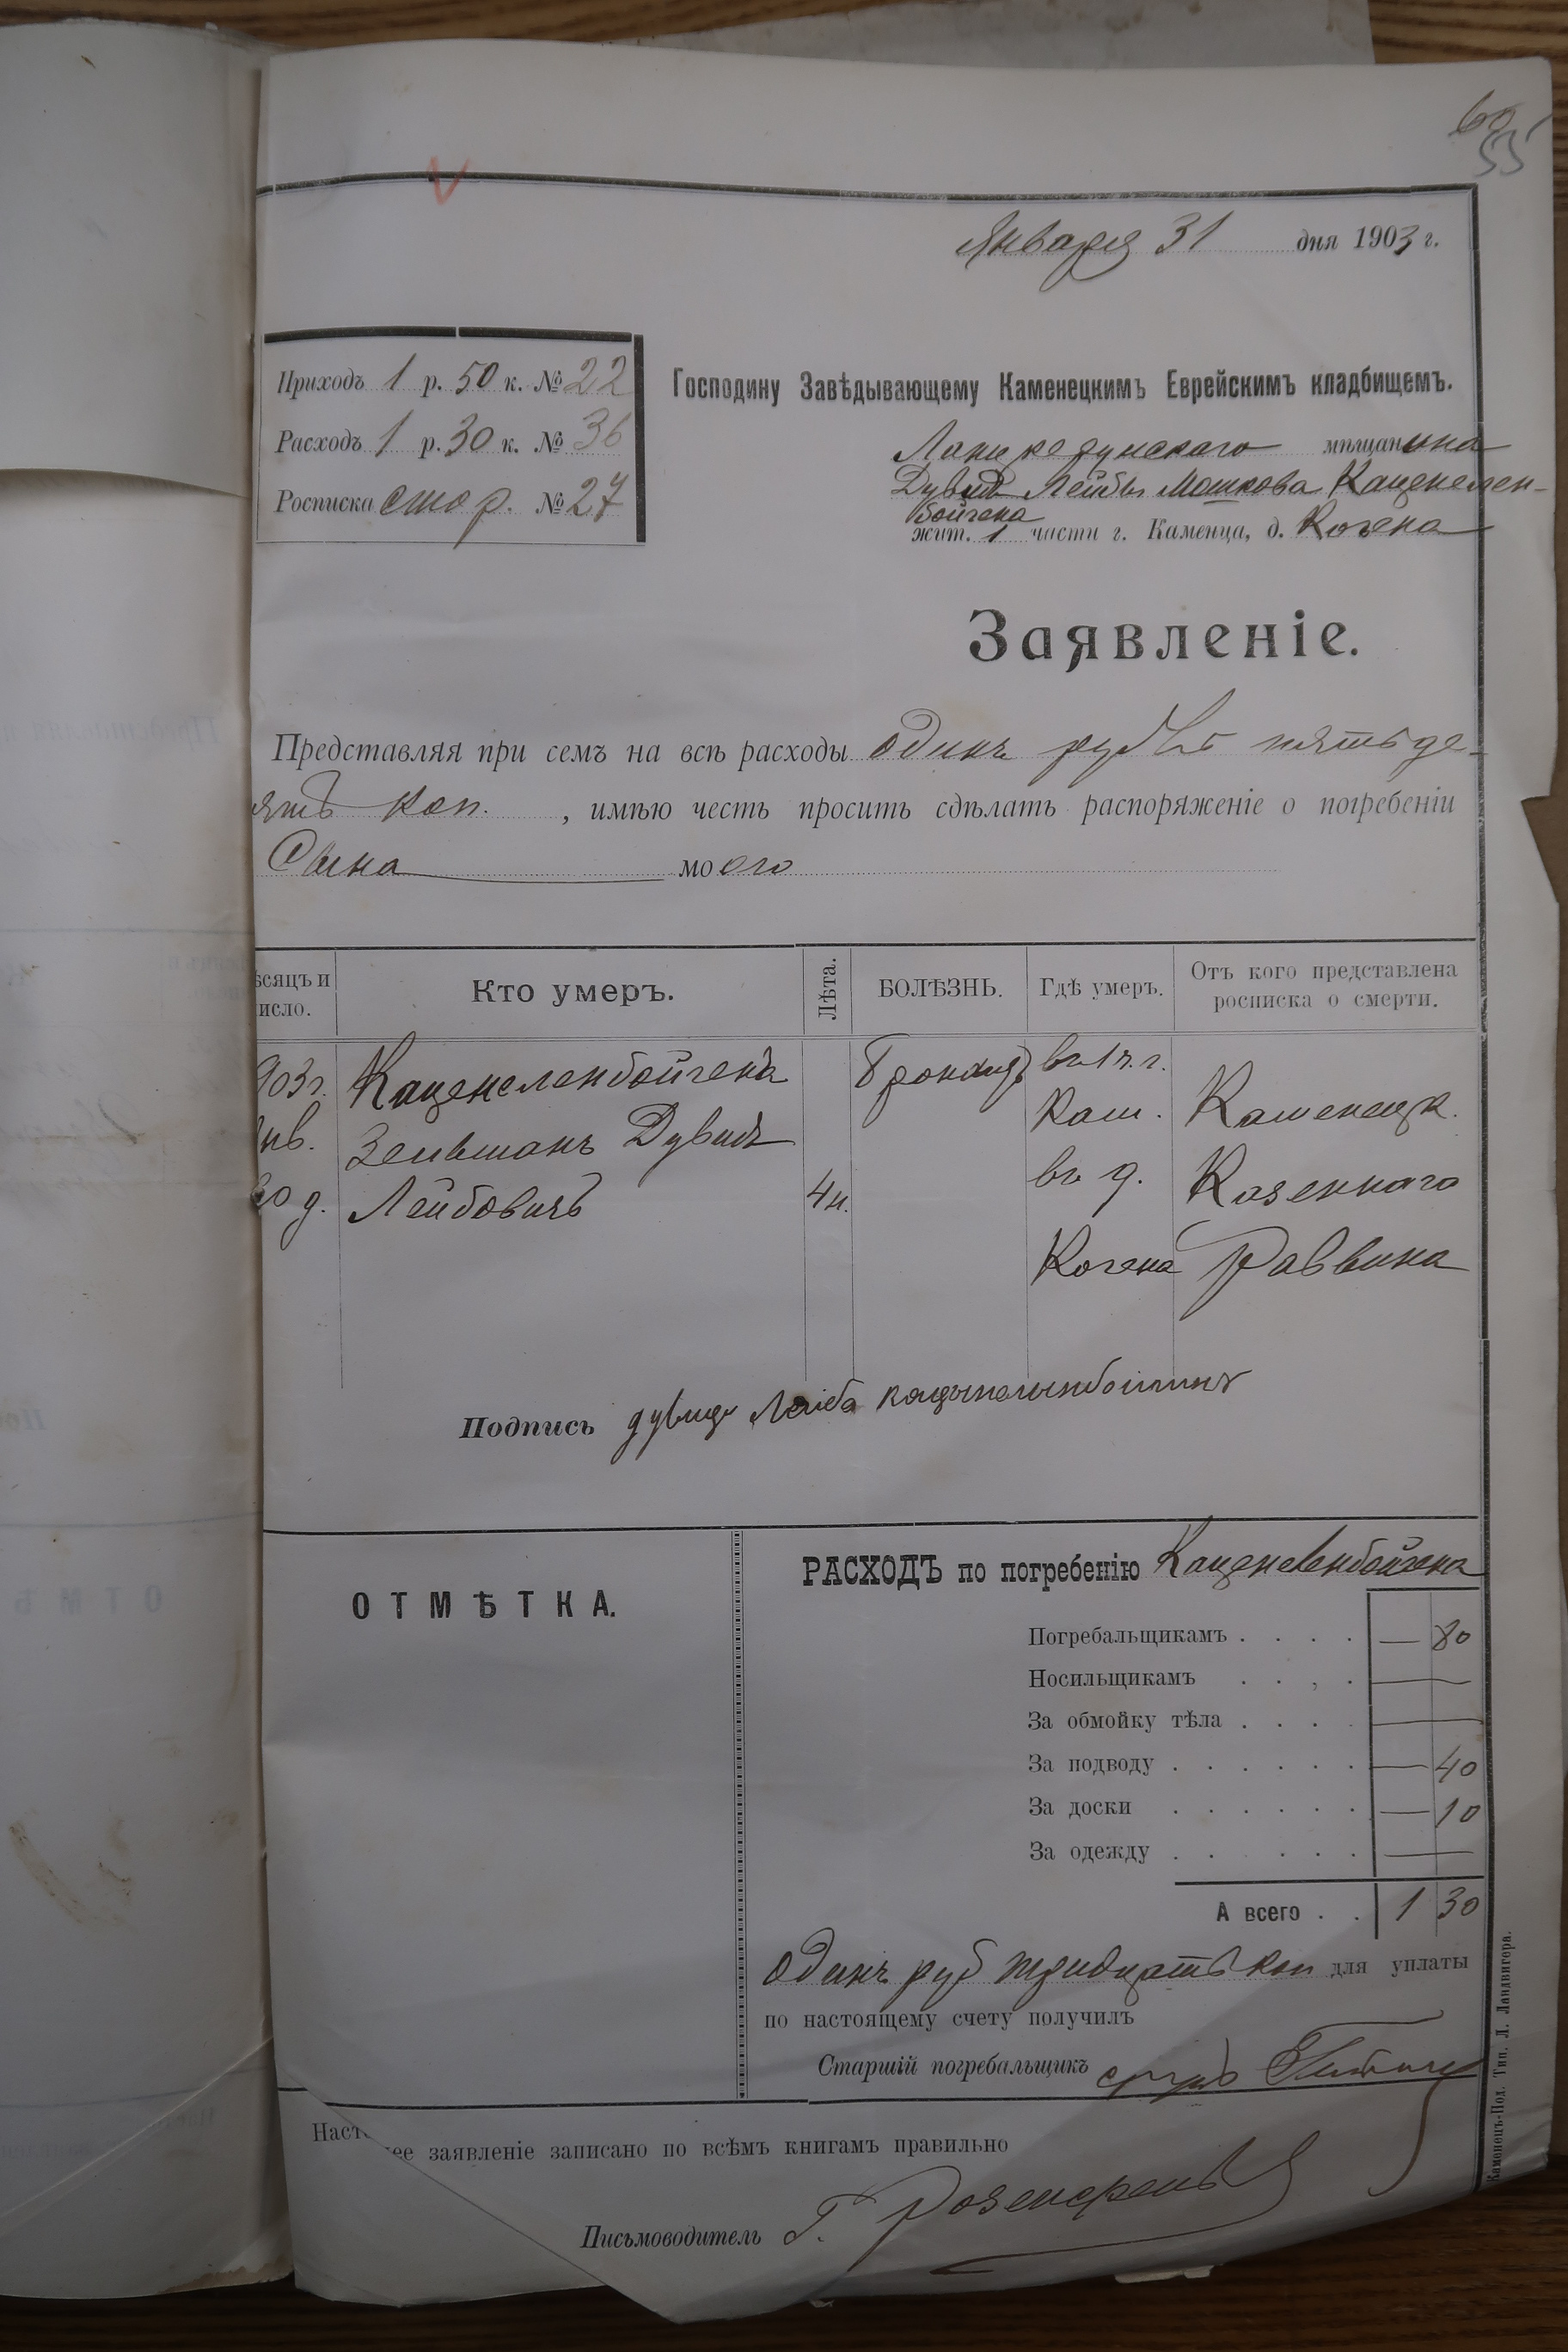 60
55
Января 31 дня 1903 г.
Приходъ 1 р. 50 к. № 22
Расходъ 1 р. 30 к. № 36
Росписка стор. № 27
Господину Завѣдывающему Каменецкимъ Еврейскимъ кладбищемъ.
мѣщанина
Дувидъ Лейбы Мошкова Каценелен-
бойгена
жит. 1 части г. Каменца, д. Когена
Заявленіе.
Представляя при семъ на всѣ расходы одинъ рубль пятьде-
ятъ коп. , имѣю честь просить сдѣлать распоряженіе о погребеніи
Сына моего
ѣсяцъ и исло. Кто умеръ. Лѣта. БОЛѢЗНЬ. Гдѣ умеръ. Отъ кого представлена росписка о смерти.
903г. Каценеленбойгенъ Бронхитъ въ 1 ч. г.
нв. Зельманъ Дувидъ Кам. Каменецк.
30 д. Лейбовичъ 4 н. въ д. Казеннаго
Когена Раввина
Подпись дувидъ Лейба
ОТМѢТКА.
РАСХОДЪ по погребенію Каценеленбойгена
Погребальщикамъ . . . . — 80
Носильщикамъ . . . . —
За обмойку тѣла . . . . —
За подводу . . . . . . — 40
За доски . . . . . . — 10
За одежду . . . . . . —
А всего . . 1 30
одинъ руб тридцать коп для уплаты
по настоящему счету получилъ
Старшій погребальщикъ
Наст ее заявленіе записано по всѣмъ книгамъ правильно
Письмоводитель Г.
Каменецъ-Под. Тип. Л. Ландвигера.